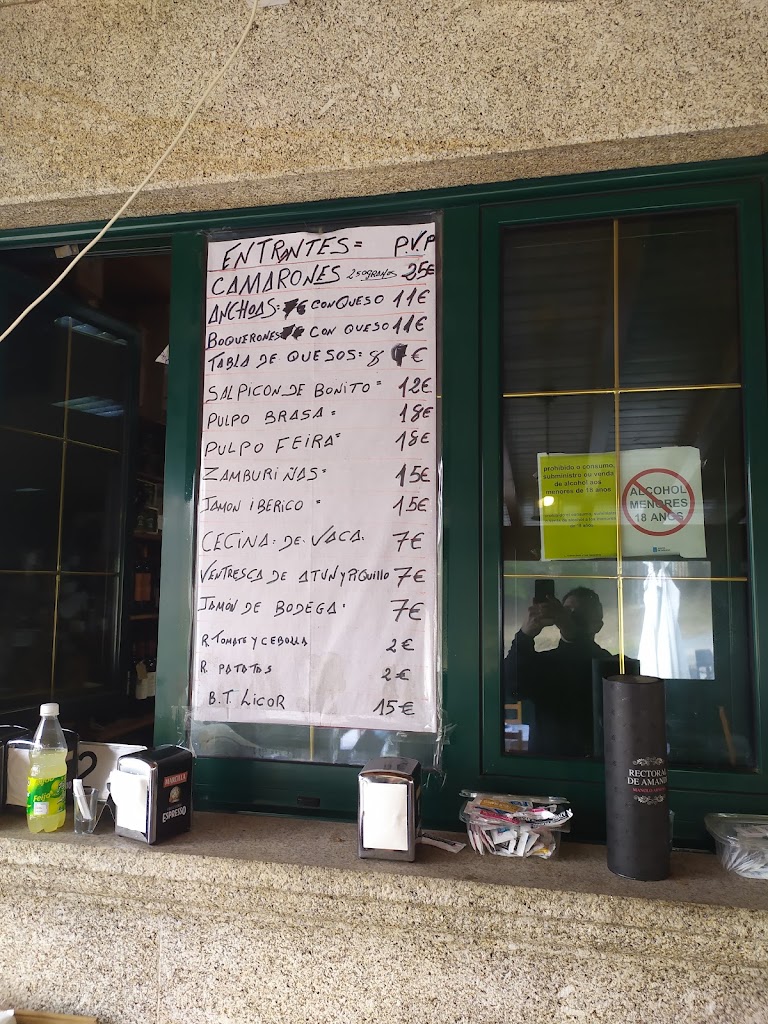 ENTRANTES= P.V.P
CAMARONES 250GRAMOS 25€
ANCHOAS: 7€ CON QUESO 11€
BOQUERONES 7€ CON QUESO 11€
TABLA DE QUESOS: 8 €
SALPICON DE BONITO= 12€
PULPO BRASA= 18€
PULPO FEIRA= 18€
ZAMBURIÑAS= 15€
JAMON IBERICO = 15€
CECINA: DE: VACA. 7€
VENTRESCA DE ATUN Y PIQUILLO 7€
JAMÓN DE BODEGA: 7€
R. TOMATE Y CEBOLLA 2€
R. PATATAS 2€
B.T. LICOR 15€
prohibido o consumo,
subministro ou venda
de alcohol aos
menores de 18 anos
ALCOHOL
MENORES
18 ANOS
2
MARCILLA
ESPRESSO
RECTORAL
DE AMANDI